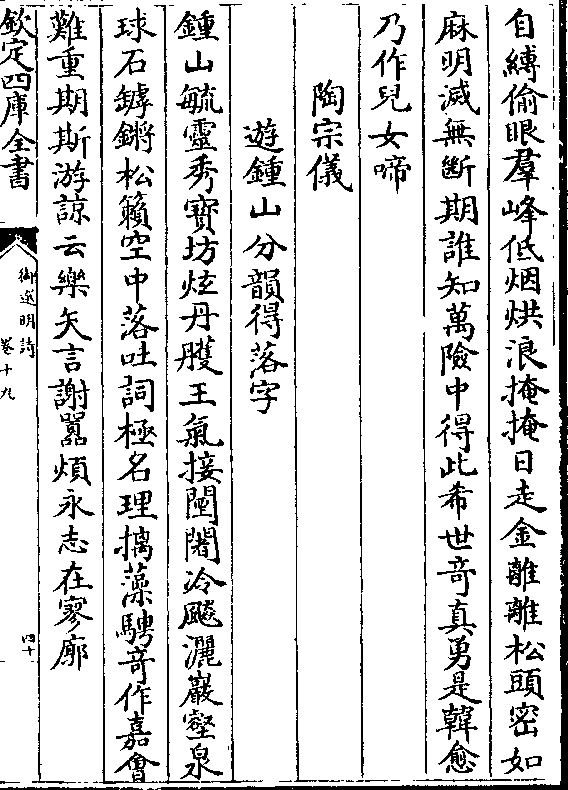 自縳偷眼羣峰低烟烘浪掩掩日走金離離松頭密如
麻明滅無斷期誰知萬險中得此希世竒真勇是韓愈
乃作兒女啼
陶宗儀
遊鍾山分韻得落字
鍾山毓靈秀寶坊炫丹雘王氣接闉闍冷飈灑巖壑泉
球石鏬鏘松籟空中落吐詞極名理摛藻騁竒作嘉會
難重期斯游諒云樂矢言謝囂煩永志在寥廓
欽定四庫全書
御選明詩
卷十九
四十